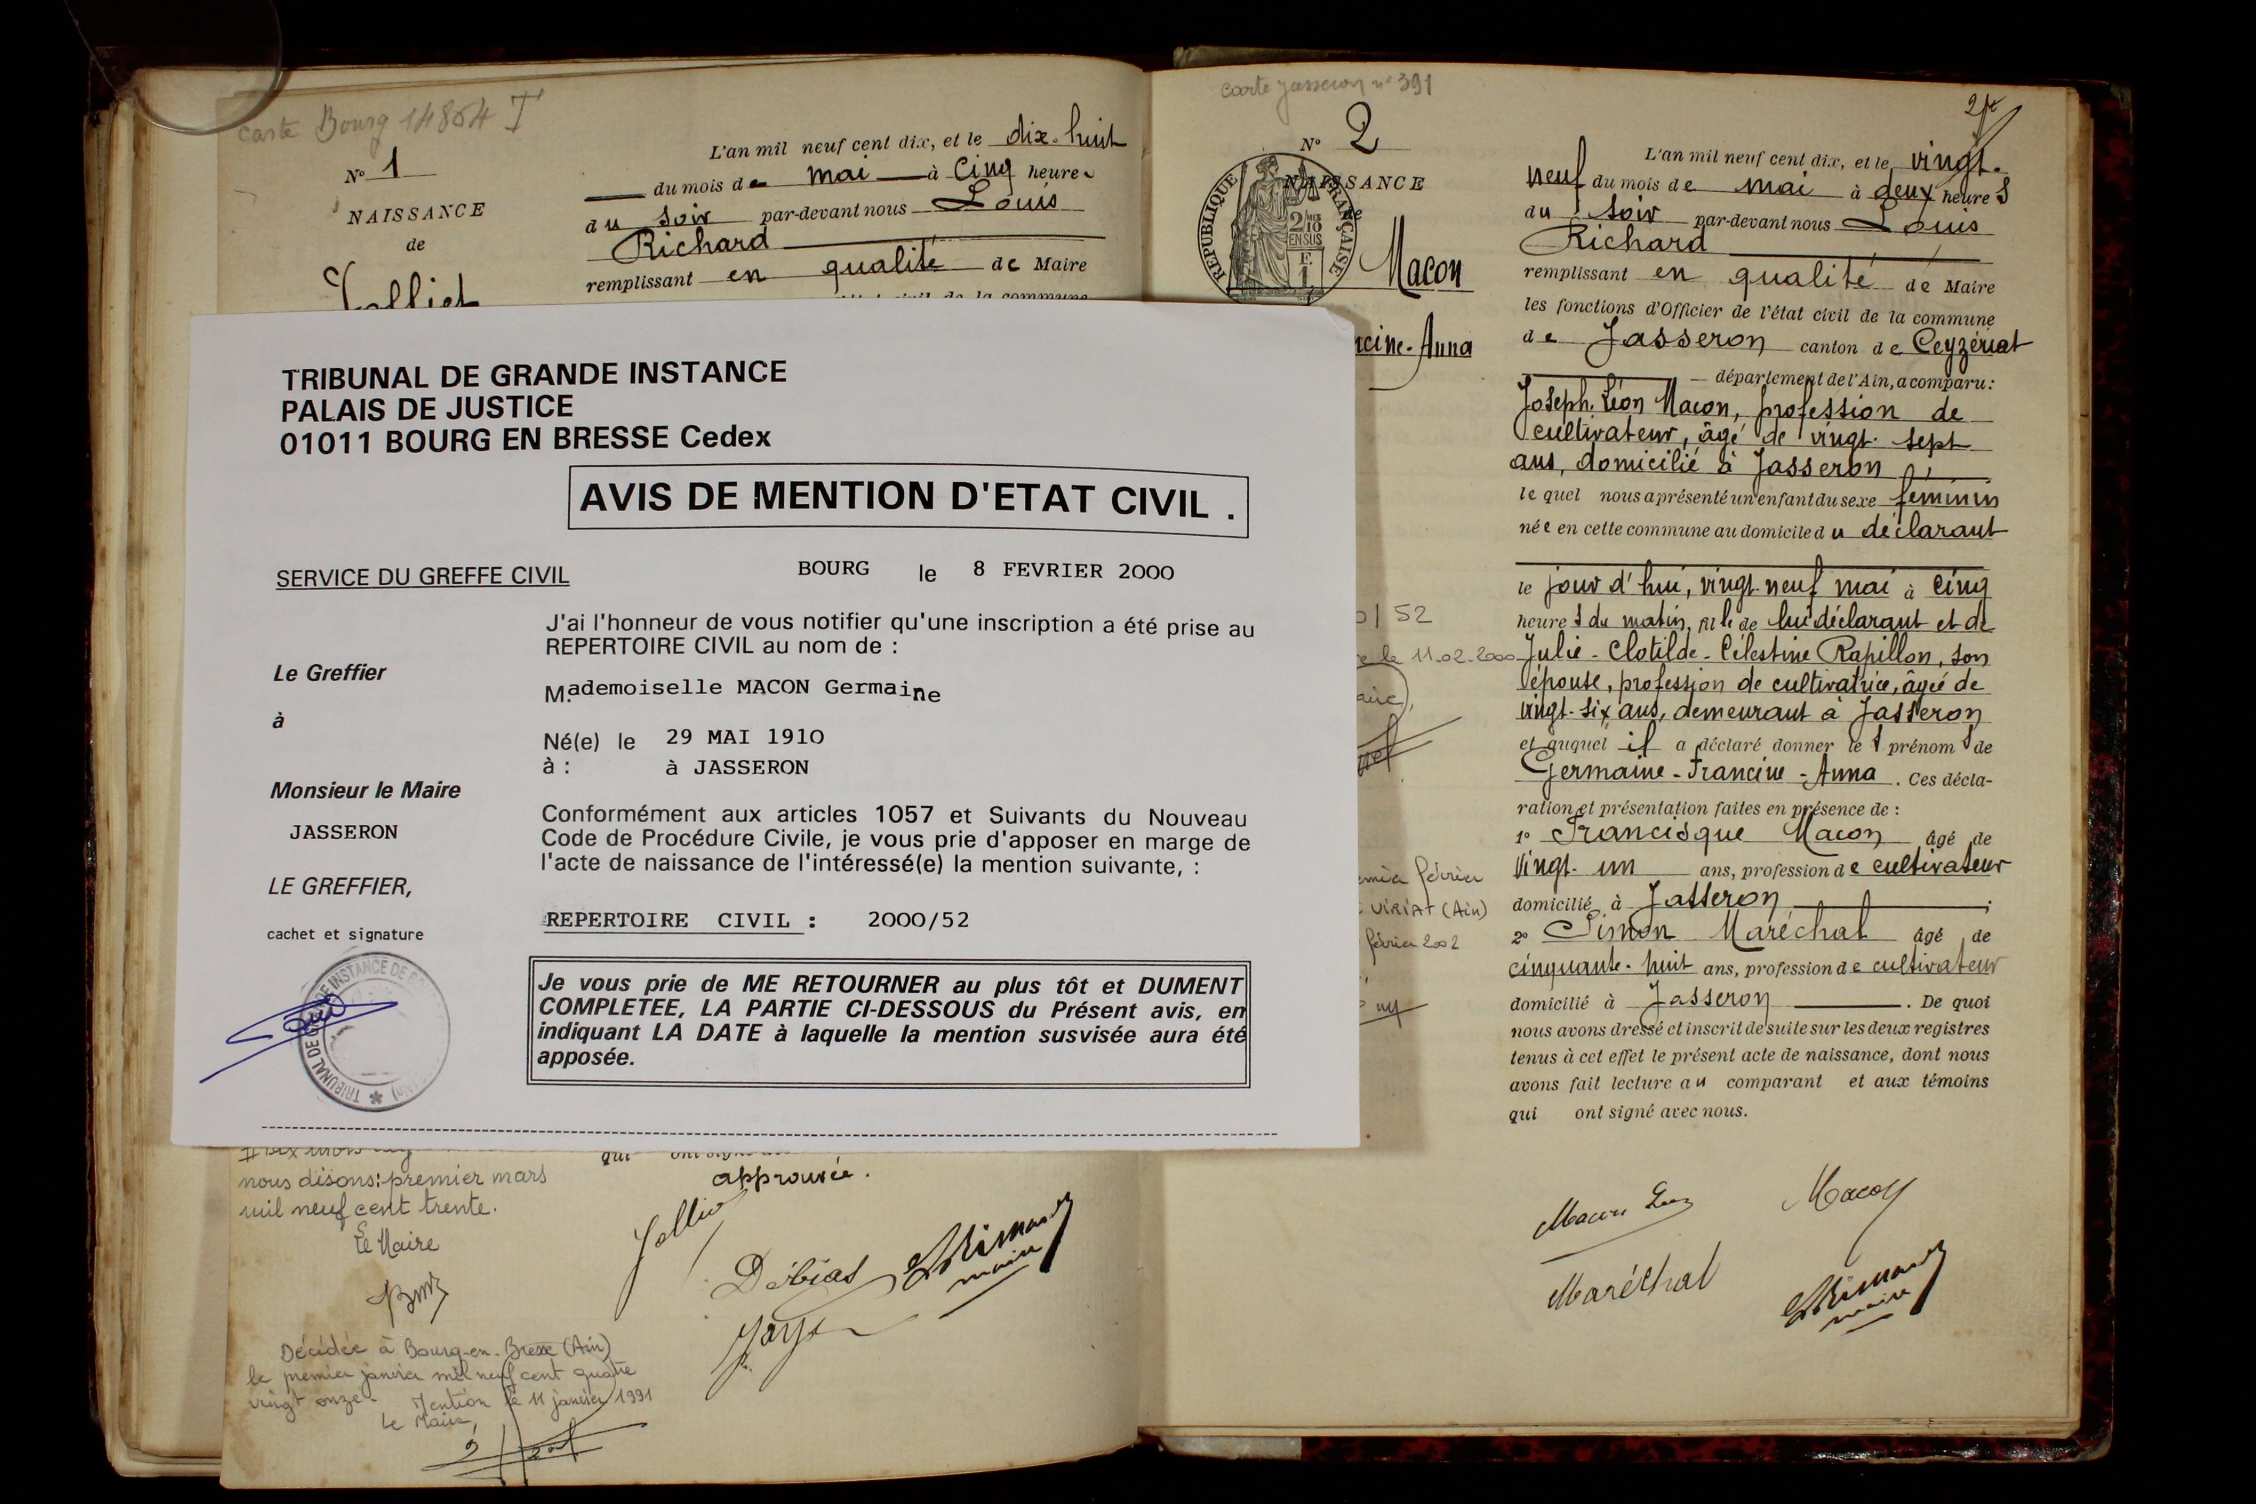 carte Bourg 14804 T
N° 1
NAISSANCE
de
Jolliet
L'an mil neuf cent dix, et le dix-huit
du mois de mai à cinq heures
du soir par-devant nous Louis
Richard
remplissant en qualité de Maire
TRIBUNAL DE GRANDE INSTANCE
PALAIS DE JUSTICE
01011 BOURG EN BRESSE Cedex
AVIS DE MENTION D'ETAT CIVIL .
SERVICE DU GREFFE CIVIL
BOURG le 8 FEVRIER 2000
J'ai l'honneur de vous notifier qu'une inscription a été prise au
REPERTOIRE CIVIL au nom de :
Le Greffier
M.ademoiselle MACON Germaine
à
Né(e) le 29 MAI 1910
à : à JASSERON
Monsieur le Maire
JASSERON
Conformément aux articles 1057 et Suivants du Nouveau
Code de Procédure Civile, je vous prie d'apposer en marge de
l'acte de naissance de l'intéressé(e) la mention suivante, :
LE GREFFIER,
cachet et signature
REPERTOIRE CIVIL : 2000/52
Je vous prie de ME RETOURNER au plus tôt et DUMENT
COMPLETEE, LA PARTIE CI-DESSOUS du Présent avis, en
indiquant LA DATE à laquelle la mention susvisée aura été
apposée.
nous disons: premier mars
mil neuf cent trente.
Le Maire
approuvée.
Jolliet
Débias
maire
Décédée à Bourg-en-Bresse (Ain)
le premier janvier mil neuf cent quatre
vingt onze. Mention le 11 janvier 1991
Le Maire,
carte Jasseron n° 391
N° 2
NAISSANCE
de
REPUBLIQUE FRANÇAISE
2/10 EN SUS
Macon
ncine-Anna
52
le 11.02.2000
février
VIRIAT (Ain)
février 2002
L'an mil neuf cent dix, et le vingt-
neuf du mois de mai à deux heures
du soir par-devant nous Louis
Richard
remplissant en qualité de Maire
les fonctions d'Officier de l'état civil de la commune
de Jasseron canton de Ceyzériat
département de l'Ain, a comparu:
Joseph-Léon Macon, profession de
cultivateur, âgé de vingt-sept
ans, domicilié à Jasseron
lequel nous a présenté un enfant du sexe féminin
née en cette commune au domicile du déclarant
le jour d'hui, vingt-neuf mai à cinq
heures du matin, fille de lui déclarant et de
Julie-Clotilde-Célestine Rapillon, son
épouse, profession de cultivatrice, âgée de
vingt-six ans, demeurant à Jasseron
et auquel il a déclaré donner les prénoms de
Germaine-Francine-Anna. Ces décla-
ration et présentation faites en présence de :
1° Francisque Macon âgé de
vingt-un ans, profession de cultivateur
domicilié à Jasseron ;
2° Simon Maréchal âgé de
cinquante-huit ans, profession de cultivateur
domicilié à Jasseron . De quoi
nous avons dressé et inscrit de suite sur les deux registres
tenus à cet effet le présent acte de naissance, dont nous
avons fait lecture au comparant et aux témoins
qui ont signé avec nous.
Macon Macon
Maréchal
maire